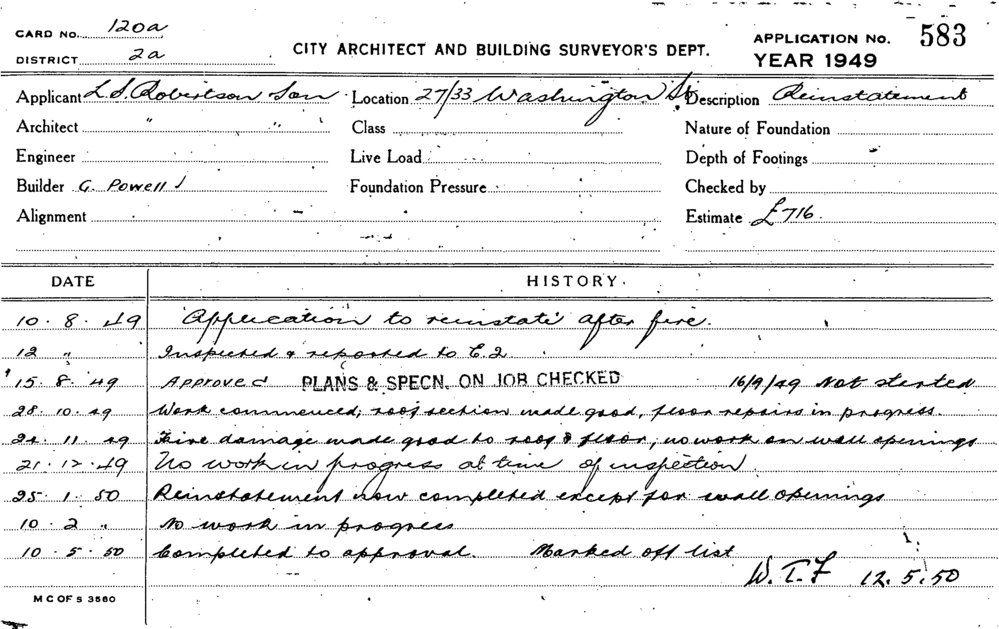 CARD No. 120a
CITY ARCHITECT AND BUILDING SURVEYOR'S DEPT.
APPLICATION No. 583
DISTRICT 2a
YEAR 1949
Applicant L. S. Robertson Son Location 27/33 Washington St Description Reinstatement
Architect " " " Class Nature of Foundation
Engineer Live Load Depth of Footings
Builder G. Powell Foundation Pressure Checked by
Alignment Estimate £716.
DATE HISTORY
10.8.49 Application to reinstate after fire.
12 " Inspected & reported to C.2
15.8.49 Approved PLANS & SPECN. ON JOB CHECKED 16/9/49 Not started
28.10.49 Work commenced; roof section made good, floor repairs in progress.
24.11.49 Fire damage made good to roof & floor, no work on wall openings
21.12.49 No work in progress at time of inspection
25.1.50 Reinstatement now completed except for wall openings
10.2 " No work in progress
10.5.50 Completed to approval. Marked off list
W.T.F 12.5.50
M C OF S 3560